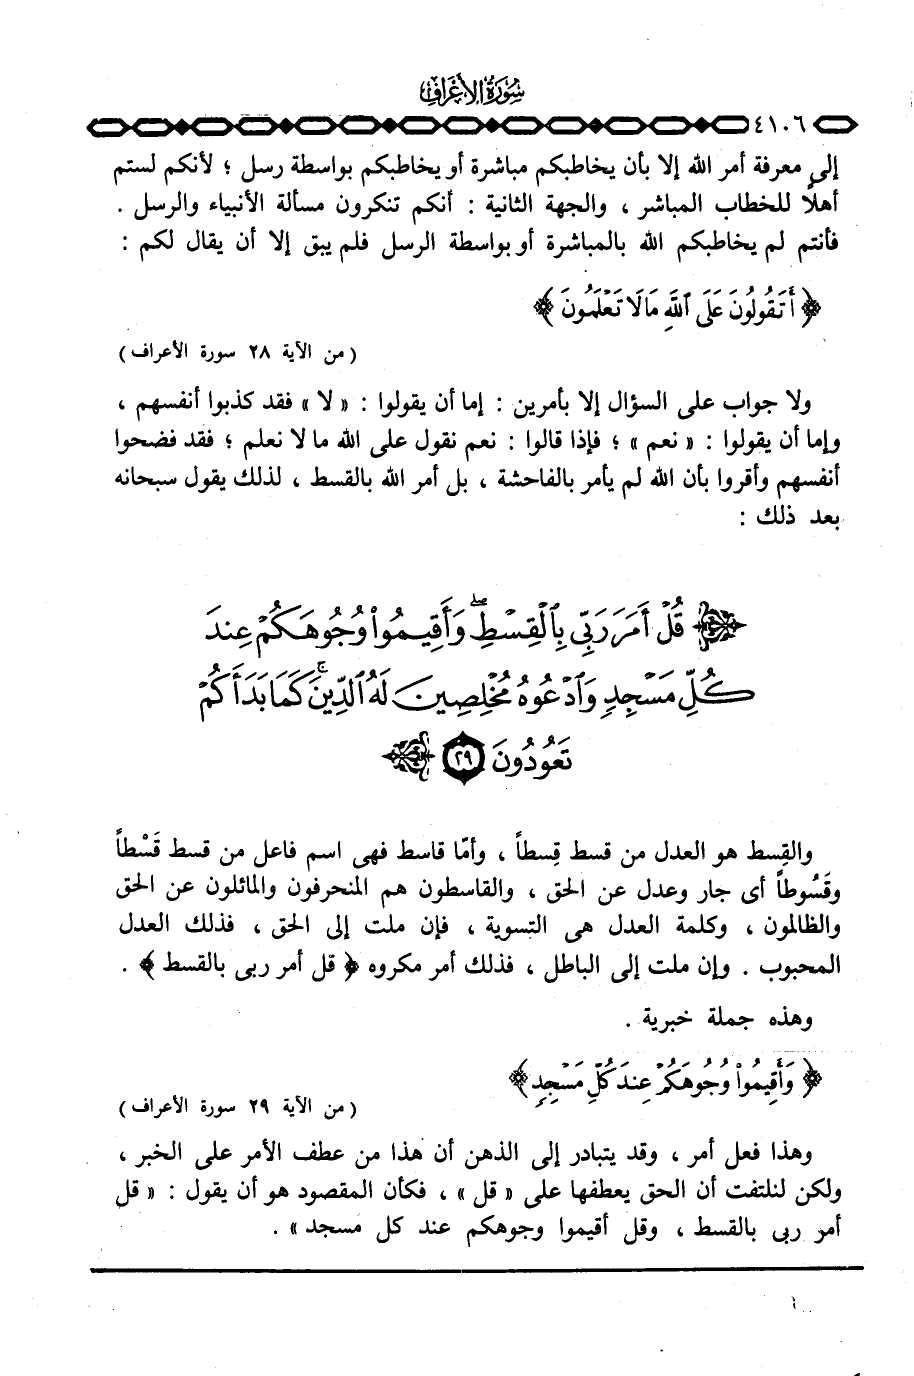 سُورَةُ الأَعْرَافِ
٤١٠٦
إلى معرفة أمر الله إلا بأن يخاطبكم مباشرة أو يخاطبكم بواسطة رسل ؛ لأنكم لستم
أهلاً للخطاب المباشر ، والجهة الثانية : أنكم تنكرون مسألة الأنبياء والرسل .
فأنتم لم يخاطبكم الله بالمباشرة أو بواسطة الرسل فلم يبق إلا أن يقال لكم :
﴿ أَتَقُولُونَ عَلَى ٱللَّهِ مَالَا تَعْلَمُونَ ﴾
( من الآية ٢٨ سورة الأعراف )
ولا جواب على السؤال إلا بأمرين : إما أن يقولوا : « لا » فقد كذبوا أنفسهم ،
وإما أن يقولوا : « نعم » ؛ فإذا قالوا : نعم نقول على الله ما لا نعلم ؛ فقد فضحوا
أنفسهم وأقروا بأن الله لم يأمر بالفاحشة ، بل أمر الله بالقسط ، لذلك يقول سبحانه
بعد ذلك :
﴿ قُلْ أَمَرَ رَبِّى بِٱلْقِسْطِ ۖ وَأَقِيمُوا۟ وُجُوهَكُمْ عِندَ
كُلِّ مَسْجِدٍ وَٱدْعُوهُ مُخْلِصِينَ لَهُ ٱلدِّينَ ۚ كَمَا بَدَأَكُمْ
تَعُودُونَ ٢٩ ﴾
والقِسط هو العدل من قسط قِسطاً ، وأمّا قاسط فهى اسم فاعل من قسط قَسْطاً
وقُسُوطاً أى جار وعدل عن الحق ، والقاسطون هم المنحرفون والمائلون عن الحق
والظالمون ، وكلمة العدل هى التسوية ، فإن ملت إلى الحق ، فذلك العدل
المحبوب . وإن ملت إلى الباطل ، فذلك أمر مكروه ﴿ قل أمر ربى بالقسط ﴾ .
وهذه جملة خبرية .
﴿ وَأَقِيمُوا۟ وُجُوهَكُمْ عِندَ كُلِّ مَسْجِدٍ ﴾
( من الآية ٢٩ سورة الأعراف )
وهذا فعل أمر ، وقد يتبادر إلى الذهن أن هذا من عطف الأمر على الخبر ،
ولكن لنلتفت أن الحق يعطفها على « قل » ، فكأن المقصود هو أن يقول : « قل
أمر ربى بالقسط ، وقل أقيموا وجوهكم عند كل مسجد » .